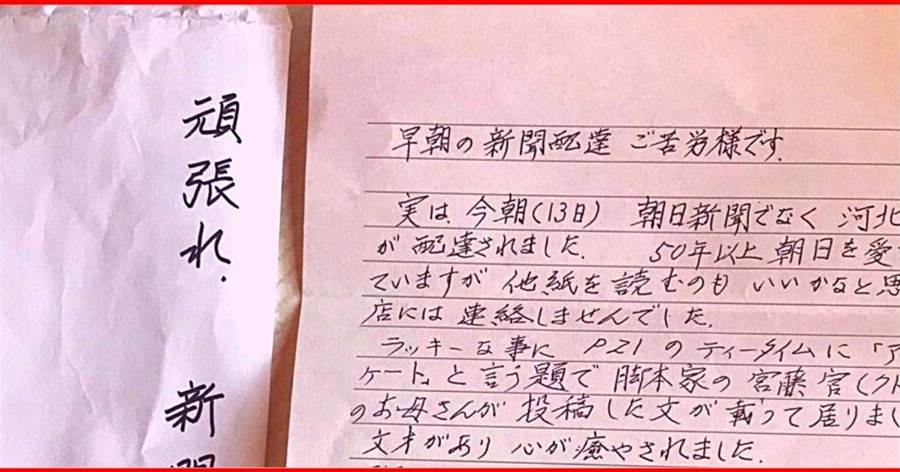 頑張れ.
新
早朝の新聞配達 ご苦労様です.
実は 今朝(13日) 朝日新聞でなく 河北
が 配達されました. 50年以上 朝日を愛
ていますが 他紙を読むのも いいかなと思
店には 連絡しませんでした.
ラッキーな事に P21 のティータイムに「ア
ケート」と言う題で 脚本家の 宮藤官(クド
のお母さんが 投稿した文が 載って居りまし
文才があり 心が癒やされました.